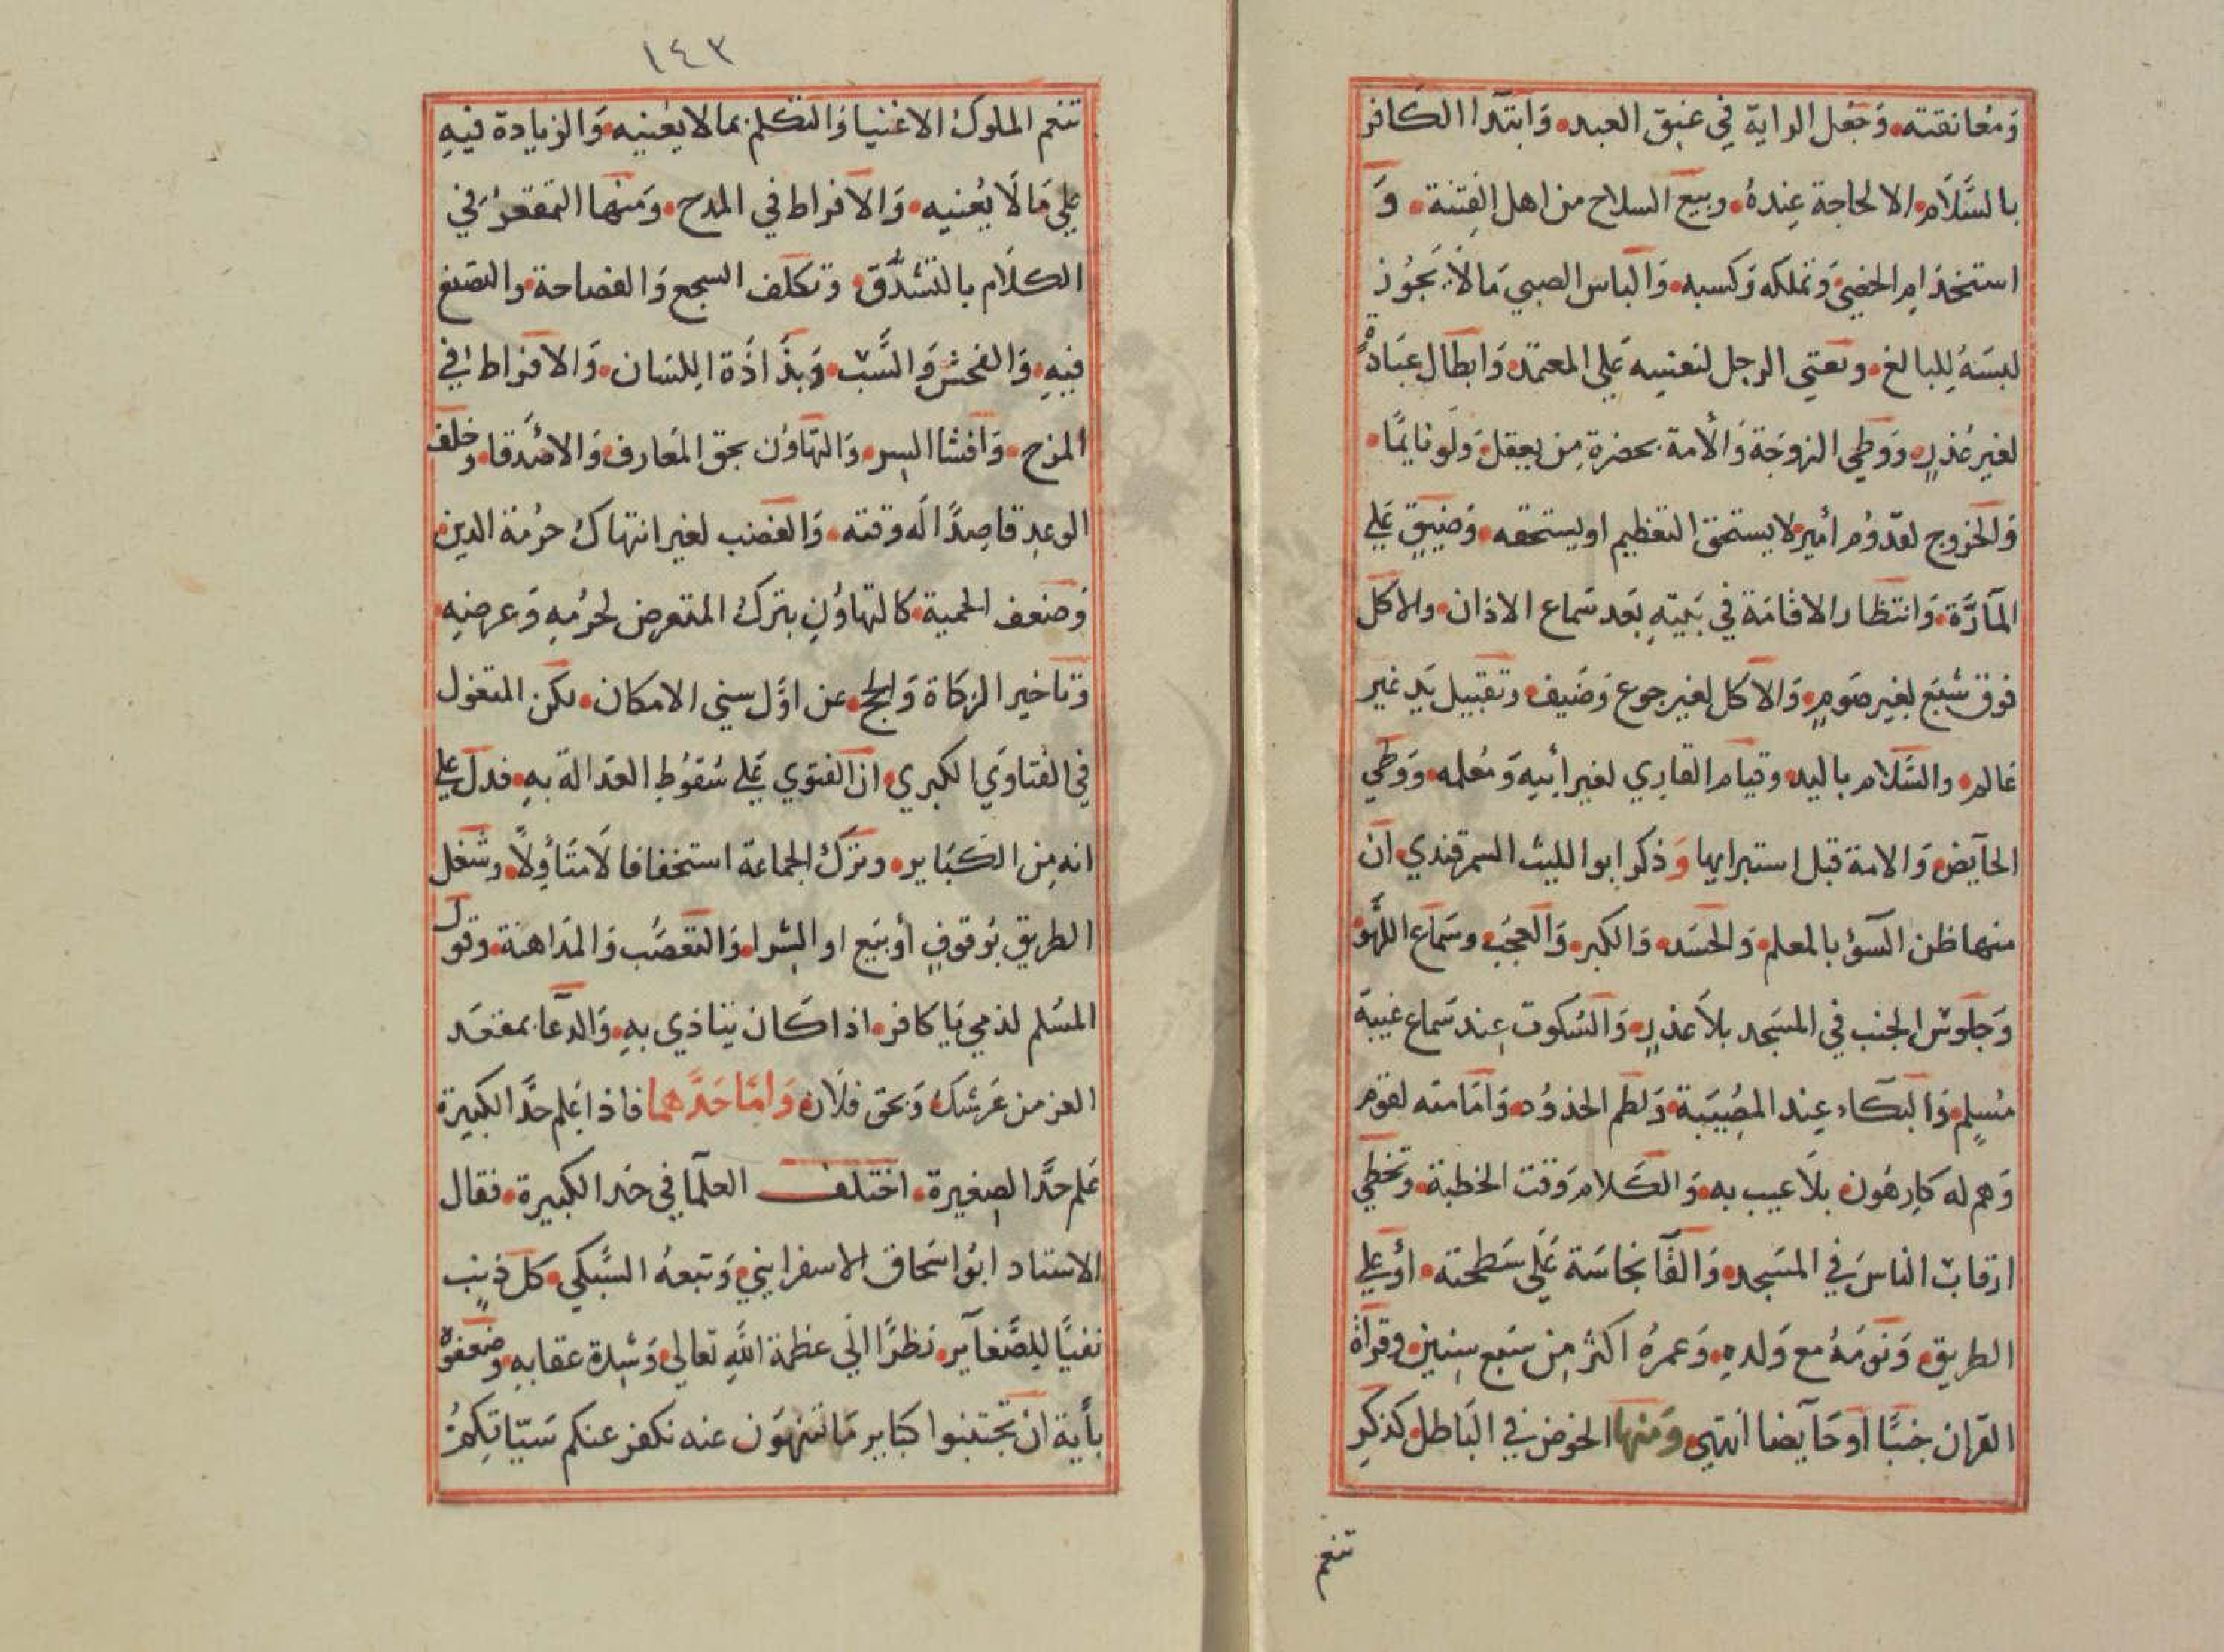 وَمُعانقته وَجَعْل الراية في عنق العبد وَابتدا الكافر
بالسَّلَام الا لحاجة عندهُ وبيع السلاح من اهل الفتنة وَ
استخدام الخصي وَتملكه وَكسبه وَالباس الصبي مَالَا يَجُوز
لبسَهُ لِلبالغ وتعني الرجل لنفسه عَلى المعتمد وَابطال عبَادةٍ
لغير عُذرٍ وَوطي الزوجَة وَالأمة بحضرة مِن يعقل وَلَو نايمًا
وَالخروج لقدُوُم أمير لا يستحق التعظيم او يستحقه وَضيق عَلى
المآرَّة وَانتظار الاقامَة في بَيتهِ بَعد سَماع الاذان والاكل
فوق شبَع لغير صَومٍ وَالاكل لغير جوع وَضَيف وتقبيل يَد غير
عَالم والسَّلام باليد وقيام القاري لغير أبيه وَمُعلمه وَوَطي
الحآيض وَالامة قبل استبرايها وَذكر ابوا الليث السمرقندي ان
منها ظن السؤ بالمعلم وَالحسَد وَالكبر وَالعجَب وسَمَاع اللَّهو
وَجلوس الجنب في المسَجد بلاَ عذرٍ وَالسّكوت عِند سَماع غيبة
مُسلِم وَالبكاء عِند المصُيبَة وَلطم الخدوُد وَامَامته لقوم
وَهم له كارِهُون بلاَ عيب به وَالكلام وَقت الخطبة وتخطي
ارقاب الناسَ في المسَجد وَالقآ نجاسَة عَلى سَطحته أوْ على
الطريق وَنَومَهُ مع وَلدهِ وَعمرهُ اكثر مِن سَبع سِنين وقرآة
القرَان جنبًا أو حَآيضا انتهي وَمنها الخوض في البَاطل كذكرِ
تنعم
١٤٣
تنعم الملوك الاغنيا وَالتكلم بما لا يعنيه وَالزيادة فيهِ
علي مَا لَا يُعنيه وَالافراط في المدح وَمنها التقعرُ في
الكلَام بالتشدُّق وتكلف السجع وَالفصاحة والتصنع
فيهِ وَالفحش وَالسَّب وَبذَاذَة اللسَان وَالافراط في
المزح وَافشا السِر وَالتهَاوُن بحق المَعارف وَالاصدَقا وخلف
الوعد قاصِدًا لَه وقته وَالغضب لغير انتهاك حرُمَة الدين
وَضعف الحمية كالتهاوُنِ بترك المتعرض لحرُمهِ وَعرضِهِ
وتاخير الزكَاة وَالحج عن اوَّل سني الامكان لكن المنقول
في الفتاوَي الكبري ان الفتوي عَلى سُقوُطِ العَدالة بهِ فدل على
انه مِن الكبَاير وتَرك الجماعة استخفافا لَا متَأوِلاً وشغل
الطريق بوُقوفٍ أو بَيع او الشرا وَالتعَصُّب وَالمدَاهنة وقول
المسُلم لذمي يَا كافر اذا كَان يتاذي بهِ وَالدعَآ بمقعَد
العز من عَرشك وَبحق فلَان وَامَّا حَدَّهما فاذا عَلم حدَّ الكبيرة
عَلم حدَّ الصغيرة اختلف العلمآ في حَد الكبيرة فقال
الاستاد ابوُ اسَحاق الاسفرايني وَتبعهُ السُّبكي كل ذنبٍ
نفيًا لِلصَّغآير نظرًا الَي عظمة اللَّهِ تعالي وَشِدة عقابهِ وضعفوه
بأَية ان تَجتنبوا كبَاير مَا تنهَون عنه نكفر عنكم سَيّاتِكمُ